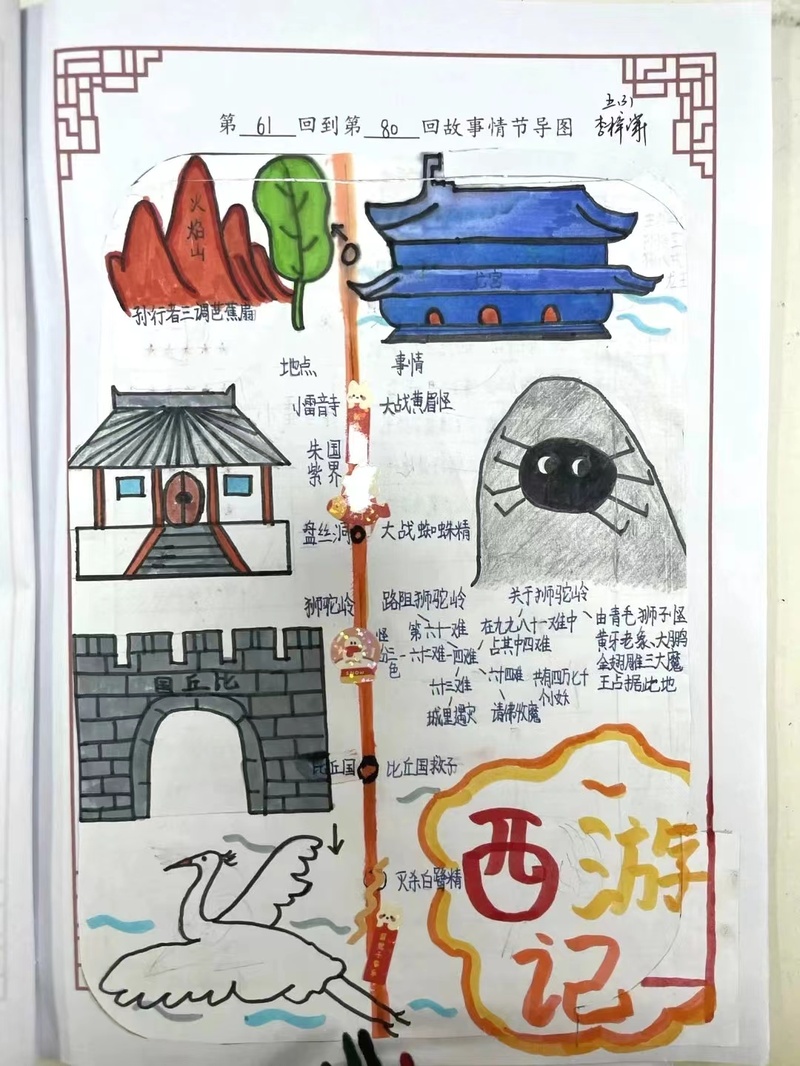 五(3)
第 61 回到第 80 回故事情节导图
火焰山
孙行者三调芭蕉扇
龙宫
地点 事情
小雷音寺 大战黄眉怪
朱国
紫界
盘丝洞 大战蜘蛛精
狮驼岭 路阻狮驼岭 关于狮驼岭
第六十一难
怪分三色
六十二难
一四难
六十三难
城里遇灾
六十四难
请佛收魔
在九九八十一难中
占其中四难
共有四万七千
个小妖
由青毛狮子怪
黄牙老象、大鹏
金翅雕三大魔
王占据此地
比丘国
比丘国 比丘国救子
灭杀白鹭精
西游记